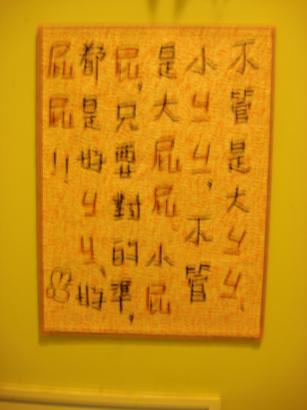 不管是大ㄐㄐ、
小ㄐㄐ,不管
是大屁屁、小屁
屁,只要對的準,
都是好ㄐㄐ、好
屁屁!!